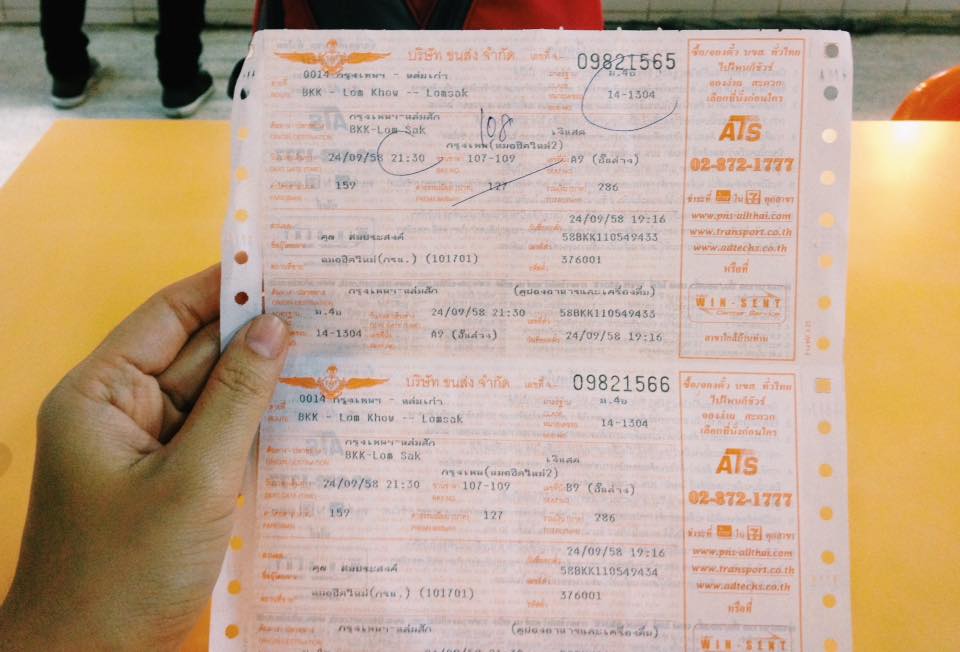 บริษัท ขนส่ง จำกัด เลขที่ 09821565
0014 กรุงเทพฯ - หล่มเก่า ม.4ข
BKK - Lom Khow -- Lomsak 14-1304
กรุงเทพฯ-หล่มสัก 108
BKK-Lom Sak เจ๊แสด
กรุงเทพ(หมอชิตใหม่2)
24/09/58 21:30 107-109 A9 (ชั้นล่าง)
159 127 286
24/09/58 19:16
คุณ สมประสงค์ 58BKK110549433
หมอชิตใหม่(กรุง.) (101701) 376001
กรุงเทพฯ-หล่มสัก (คูปองอาหารและเครื่องดื่ม)
ม.4ข 24/09/58 21:30 58BKK110549433
14-1304 A9 (ชั้นล่าง) 24/09/58 19:16
ซื้อ/จองตั๋ว บขส. ทั่วไทย
ไปไหนก็ชัวร์
จองง่าย สะดวก
เลือกที่นั่งก่อนใคร
ATS
02-872-1777
ชำระที่ ใน 7 ทุกสาขา
www.pns-allthai.com
www.transport.co.th
www.adtechs.co.th
หรือที่
WIN-SENT
Center Service
สาขาใกล้บ้านท่าน
บริษัท ขนส่ง จำกัด เลขที่ 09821566
0014 กรุงเทพฯ - หล่มเก่า ม.4ข
BKK - Lom Khow -- Lomsak 14-1304
กรุงเทพฯ-หล่มสัก
BKK-Lom Sak เจ๊แสด
กรุงเทพ(หมอชิตใหม่2)
24/09/58 21:30 107-109 B9 (ชั้นล่าง)
159 127 286
24/09/58 19:16
คุณ สมประสงค์ 58BKK110549434
หมอชิตใหม่(กรุง.) (101701) 376001
กรุงเทพฯ-หล่มสัก (คูปองอาหารและเครื่องดื่ม)
ซื้อ/จองตั๋ว บขส. ทั่วไทย
ไปไหนก็ชัวร์
จองง่าย สะดวก
เลือกที่นั่งก่อนใคร
ATS
02-872-1777
ชำระที่ ใน 7 ทุกสาขา
www.pns-allthai.com
www.transport.co.th
www.adtechs.co.th
หรือที่
WIN-SENT